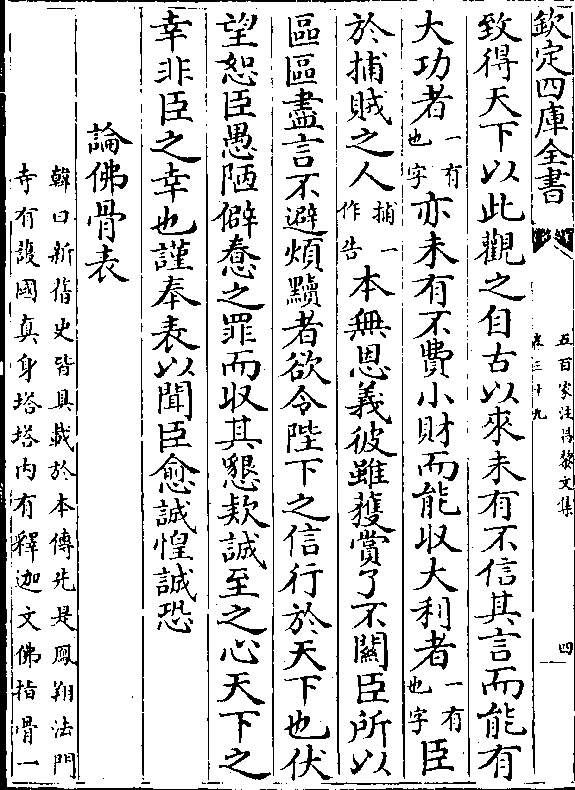 欽定四庫全書
五百家注昌黎文集
卷三十九
四
致得天下以此觀之自古以來未有不信其言而能有
大功者一有也字亦未有不費小財而能收大利者一有也字臣
於捕賊之人捕一作告本無恩義彼雖獲賞了不關臣所以
區區盡言不避煩黷者欲令陛下之信行於天下也伏
望恕臣愚陋僻惷之罪而收其懇欵誠至之心天下之
幸非臣之幸也謹奉表以聞臣愈誠惶誠恐
論佛骨表
韓曰新舊史皆具載於本傳先是鳳翔法門
寺有護國真身塔塔內有釋迦文佛指骨一